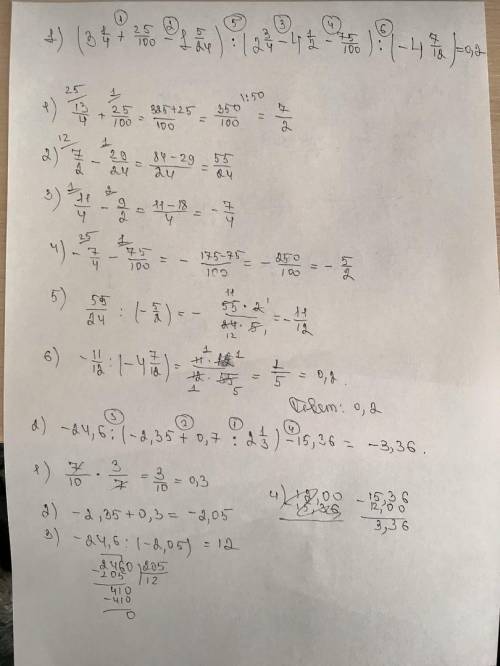 1) (3 1/4 + 25/100 - 1 5/24) : (2 3/4 - 4 1/2 - 75/100) : (-4 7/12) = 0,2
1 2 5 3 4 6
1) 13/4 + 25/100 = 325+25/100 = 350/100 = 7/2
25 1 1:50
2) 7/2 - 29/24 = 84-29/24 = 55/24
12 1
3) 11/4 - 9/2 = 11-18/4 = - 7/4
1 2
4) - 7/4 - 75/100 = - 175-75/100 = - 250/100 = - 5/2
25 1
5) 55/24 : (- 5/2) = - 55·2/24·5 = - 11/12
11 1 12 1
6) - 11/12 : (-4 7/12) = 11·12/12·55 = 1/5 = 0,2.
1 1 1 5
Ответ: 0,2
2) -24,6 : (-2,35 + 0,7 : 2 1/3) - 15,36 = -3,36.
3 2 1 4
1) 7/10 · 3/7 = 3/10 = 0,3
2) -2,35 + 0,3 = -2,05
3) -24,6 : (-2,05) = 12
2460 205
-205 12
410
-410
0
4) 12,00
15,36
- 15,36
12,00
3,36